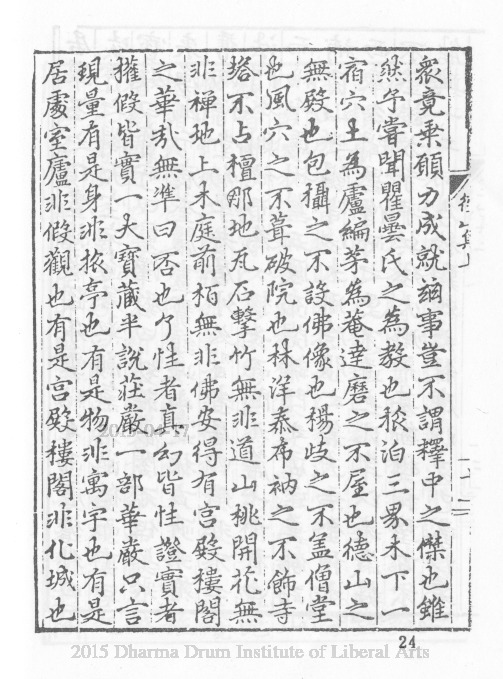 衆竟乗願力成就玆事豈不謂釋中之傑也雖
然予嘗聞瞿曇氏之為教也旅泊三界木下一
宿穴土為廬編茅為菴達磨之不屋也德山之
無殿也包攝之不設佛像也楊岐之不盖僧堂
也風穴之不葺破院也林洋泰布衲之不飾寺
塔不占檀那地瓦石擊竹無非道山桃開花無
非禪地上木庭前栢無非佛安得有宮殿樓閣
之華㢤無準曰否也了性者真幻皆性證實者
權假皆實一大寶藏半說莊嚴一部華嚴只言
現量有是身非旅亭也有是物非寓字也有是
居處室廬非假觀也有是宮殿樓閣非化城也
24
2015 Dharma Drum Institute of Liberal Arts